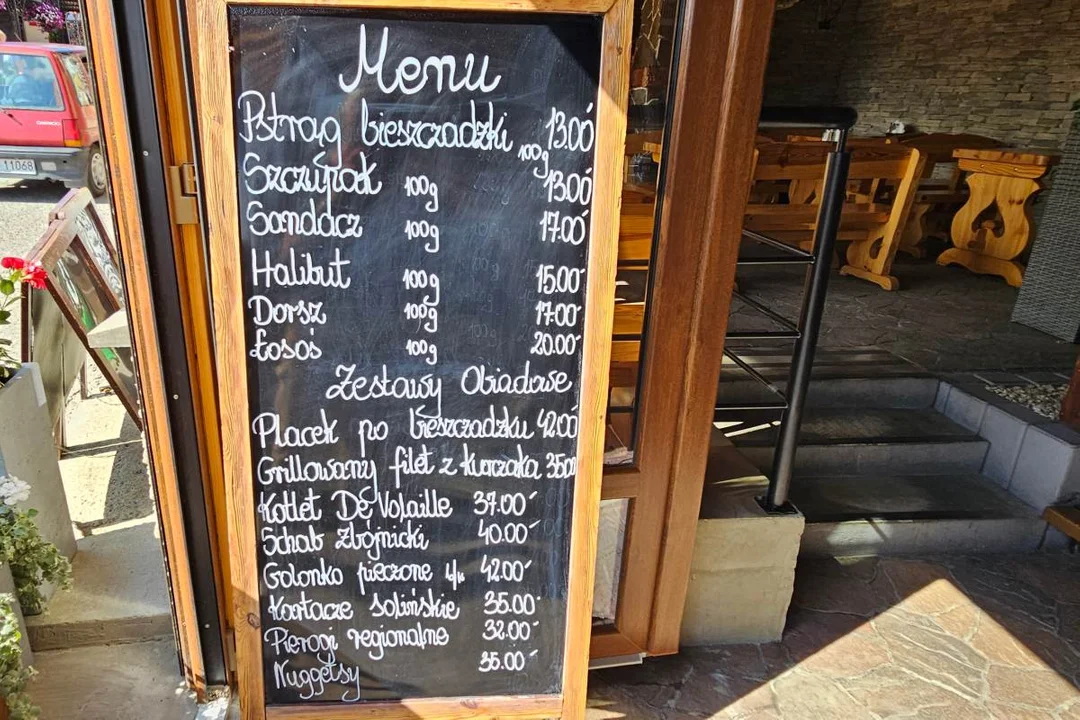 Menu
Pstrąg bieszczadzki 100g 13.00
Szczupak 100g 13.00
Sandacz 100g 17.00
Halibut 100g 15.00
Dorsz 100g 17.00
Łosoś 100g 20.00
Zestawy Obiadowe
Placek po bieszczadzku 42.00
Grillowany filet z kurczaka 35.00
Kotlet De Volaille 37.00
Schab zbójnicki 40.00
Golonko pieczone 42.00
Kartacze solińskie 35.00
Pierogi regionalne 32.00
Nuggetsy 35.00
11068